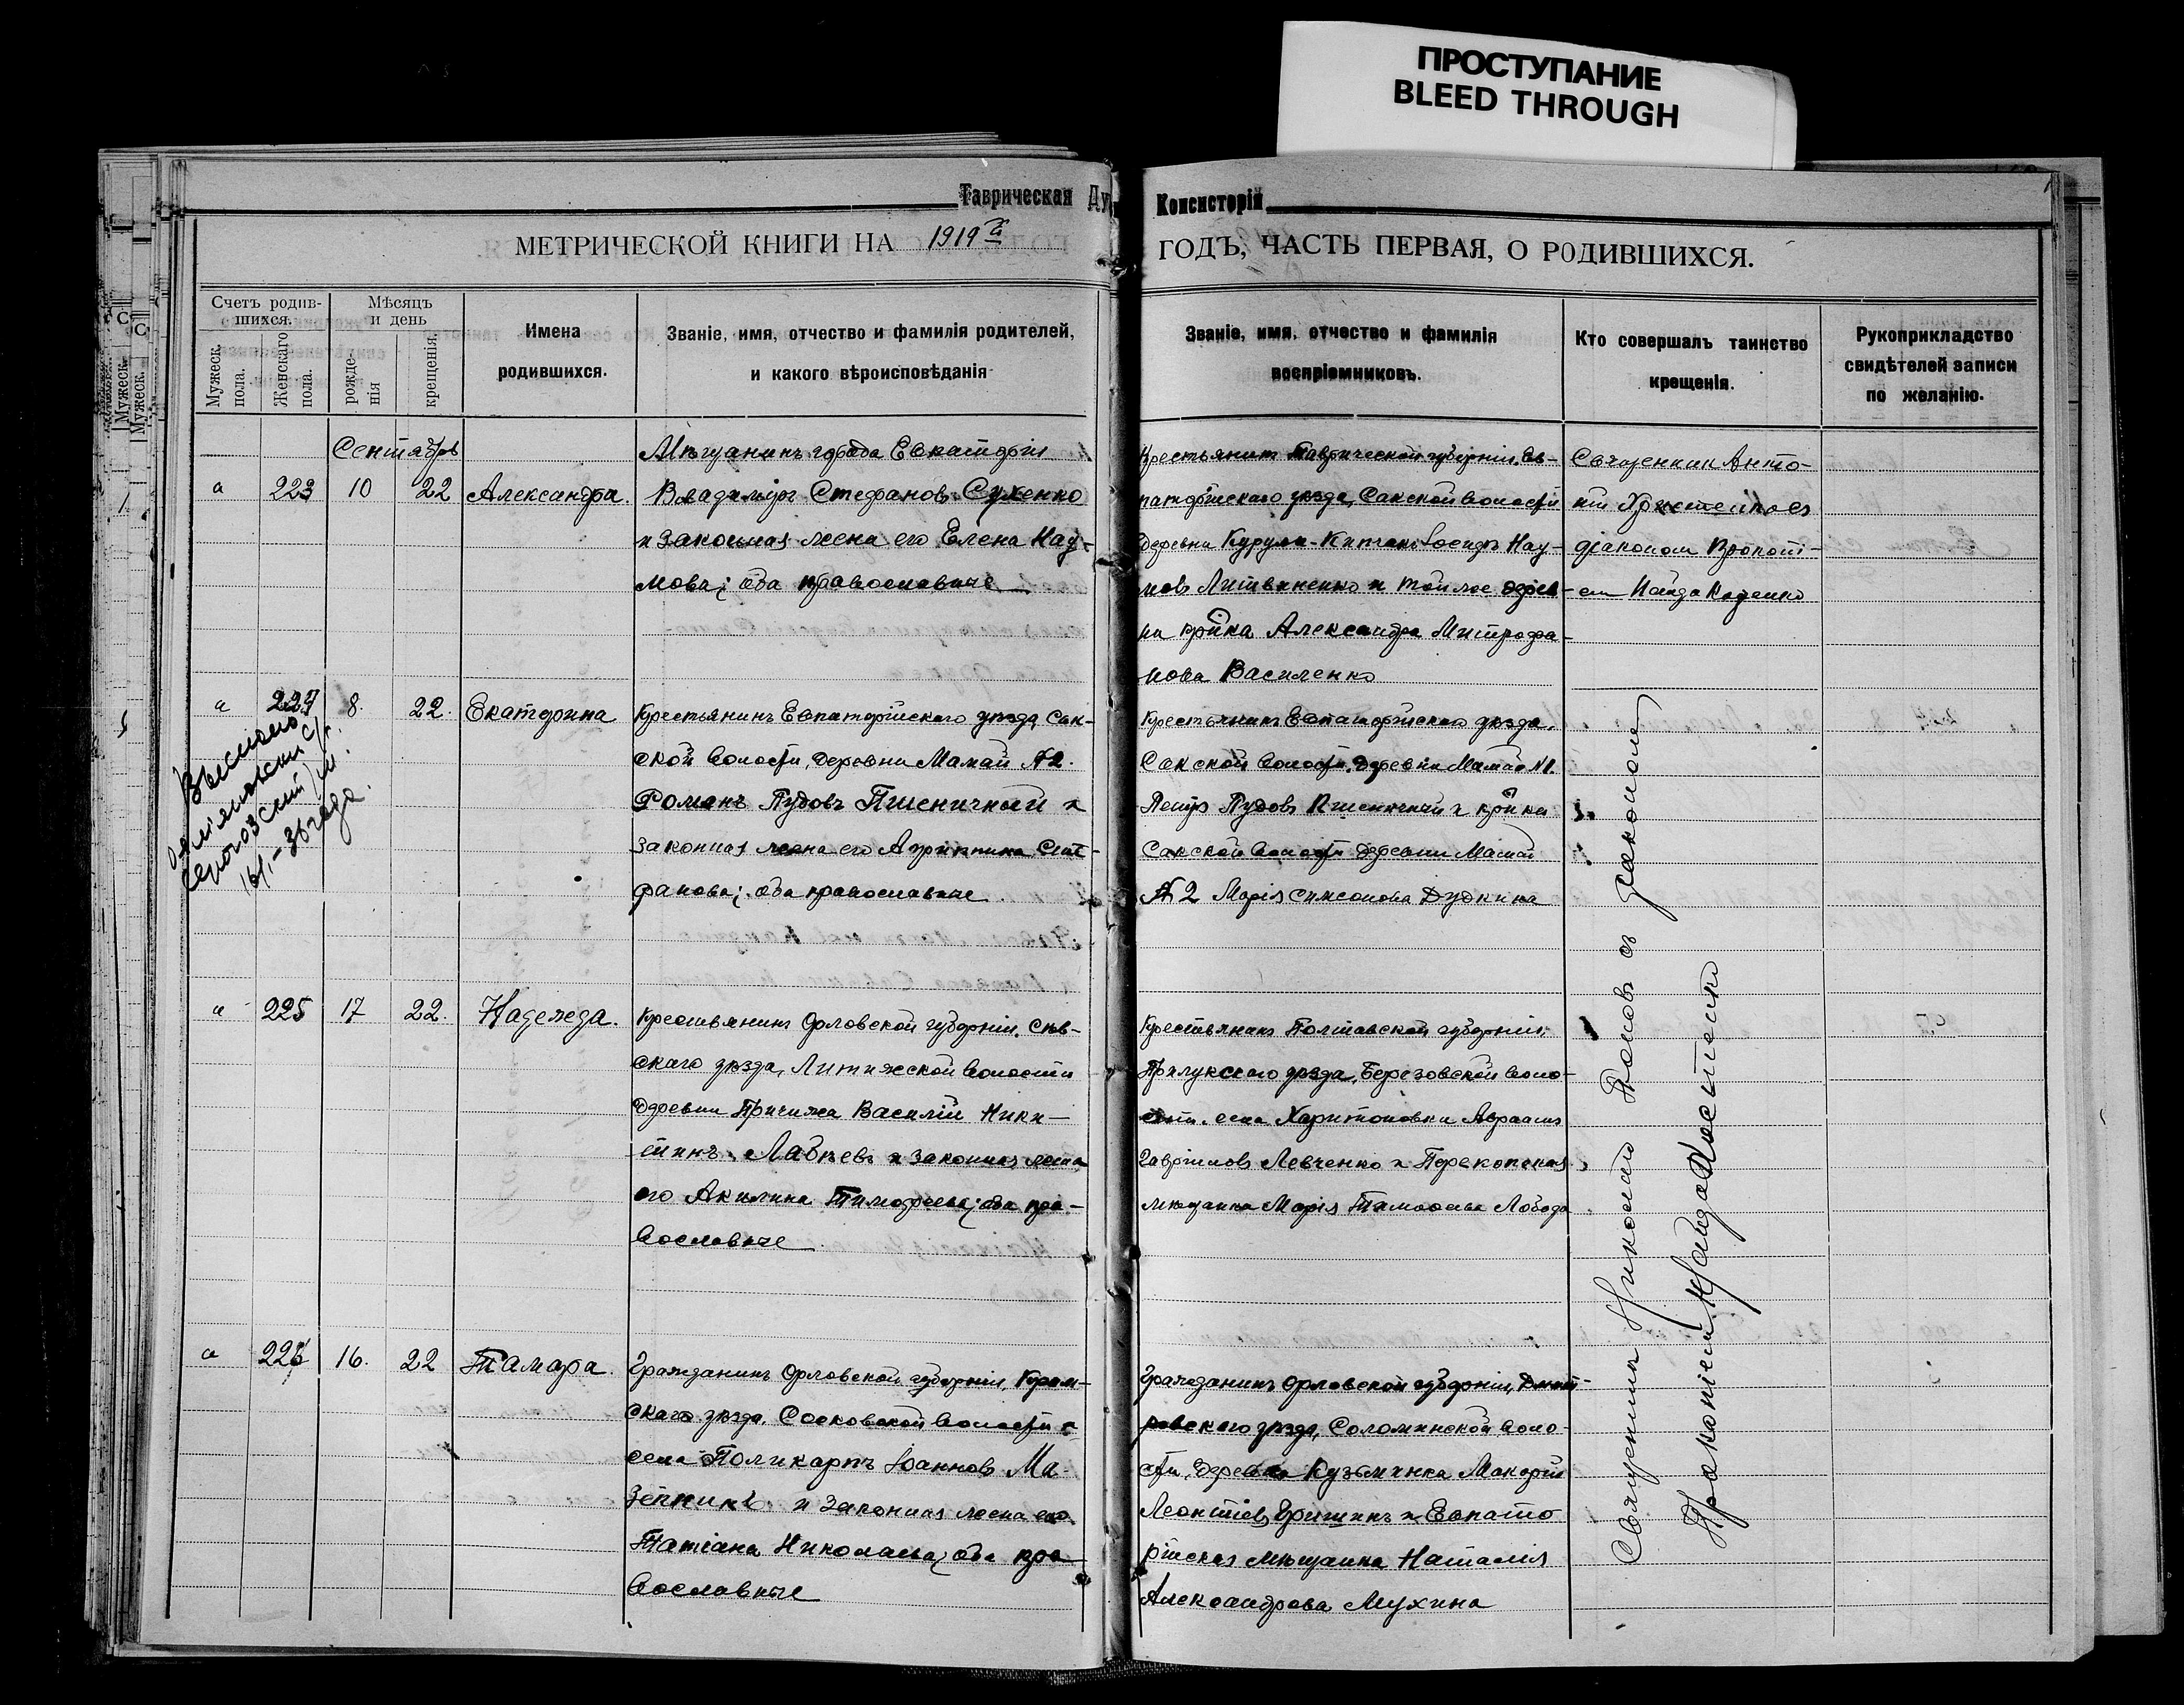 ПРОСТУПАНИЕ
BLEED THROUGH
Таврическая Ду
Консисторій
МЕТРИЧЕСКОЙ КНИГИ НА 1919й
ГОДЪ, ЧАСТЬ ПЕРВАЯ, О РОДИВШИХСЯ.
Счетъ родив-
шихся.
Мужеск. пола.
Женскаго пола.
Мѣсяцъ
и день
рожде-
нія
крещенія.
Имена
родившихся.
Званіе, имя, отчество и фамилія родителей,
и какого вѣроисповѣданія
Званіе, имя, отчество и фамилія
воспріемниковъ.
Кто совершалъ таинство
крещенія.
Рукоприкладство
свидѣтелей записи
по желанію.
Сентябрь
223 10 22 Александра.
Мѣщанинъ города Евпаторіи
Владиміръ Стефановъ Сухенко
и законная жена его Елена Нау-
мова; оба православные
Крестьянинъ Таврической губерніи, Ев-
паторійскаго уѣзда, Сакской волости
деревни Курулы-Кипчакъ Іосифъ Нау-
мовъ Литвиненко и той же дерев-
ни кр-ка Александра Митрофа-
нова Василенко
Священникъ Анто-
ній
діакономъ Прокопі-
емъ Найда
224 8. 22. Екатерина
Крестьянинъ Евпаторійскаго уѣзда, Сак-
ской волости, деревни Мамай №2.
Романъ Пудовъ Пшеничный и
законная жена его Агрипина Сте-
фанова; оба православные
Крестьянинъ Евпаторійскаго уѣзда,
Сакской волости, деревни Мамай №1.
Петръ Пудовъ Пшеничный и кр-ка
Сакской волости деревни Мамай
№2 Марія Симеонова Дудкина
225 17 22. Надежда.
Крестьянинъ Орловской губерніи, Сѣв-
скаго уѣзда, Литижской волости
деревни Причижа Василій Ники-
тинъ Лабѣевъ и законная жена
его Акилина Тимофеева; оба пра-
вославные
Крестьянинъ Полтавской губерніи,
Прилукскаго уѣзда, Березовской воло-
сти, села Харитоновки Авраамъ
Гавріиловъ Левченко и Перекопская
мѣщанка Марія Лобода
226 16. 22 Тамара.
Гражданинъ Орловской губерніи, Кром-
скаго уѣзда, Сосковской волости и
села Поликарпъ Іоанновъ Ма-
зепкинъ и законная жена его
Татіана Николаева; оба пра-
вославные
Гражданинъ Орловской губерніи, Дмит-
ровскаго уѣзда, Соломинской воло-
сти, деревни Кузьминка Макарій
Леонтіевъ Гришинъ и Евпато-
рійская мѣщанка Наталія
Александрова Мухина
Священникъ Николай Поповъ съ діакономъ
Прокопіемъ Найда